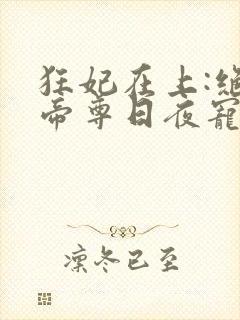 狂妃在上:绝
帝尊日夜寵
凜冬已至